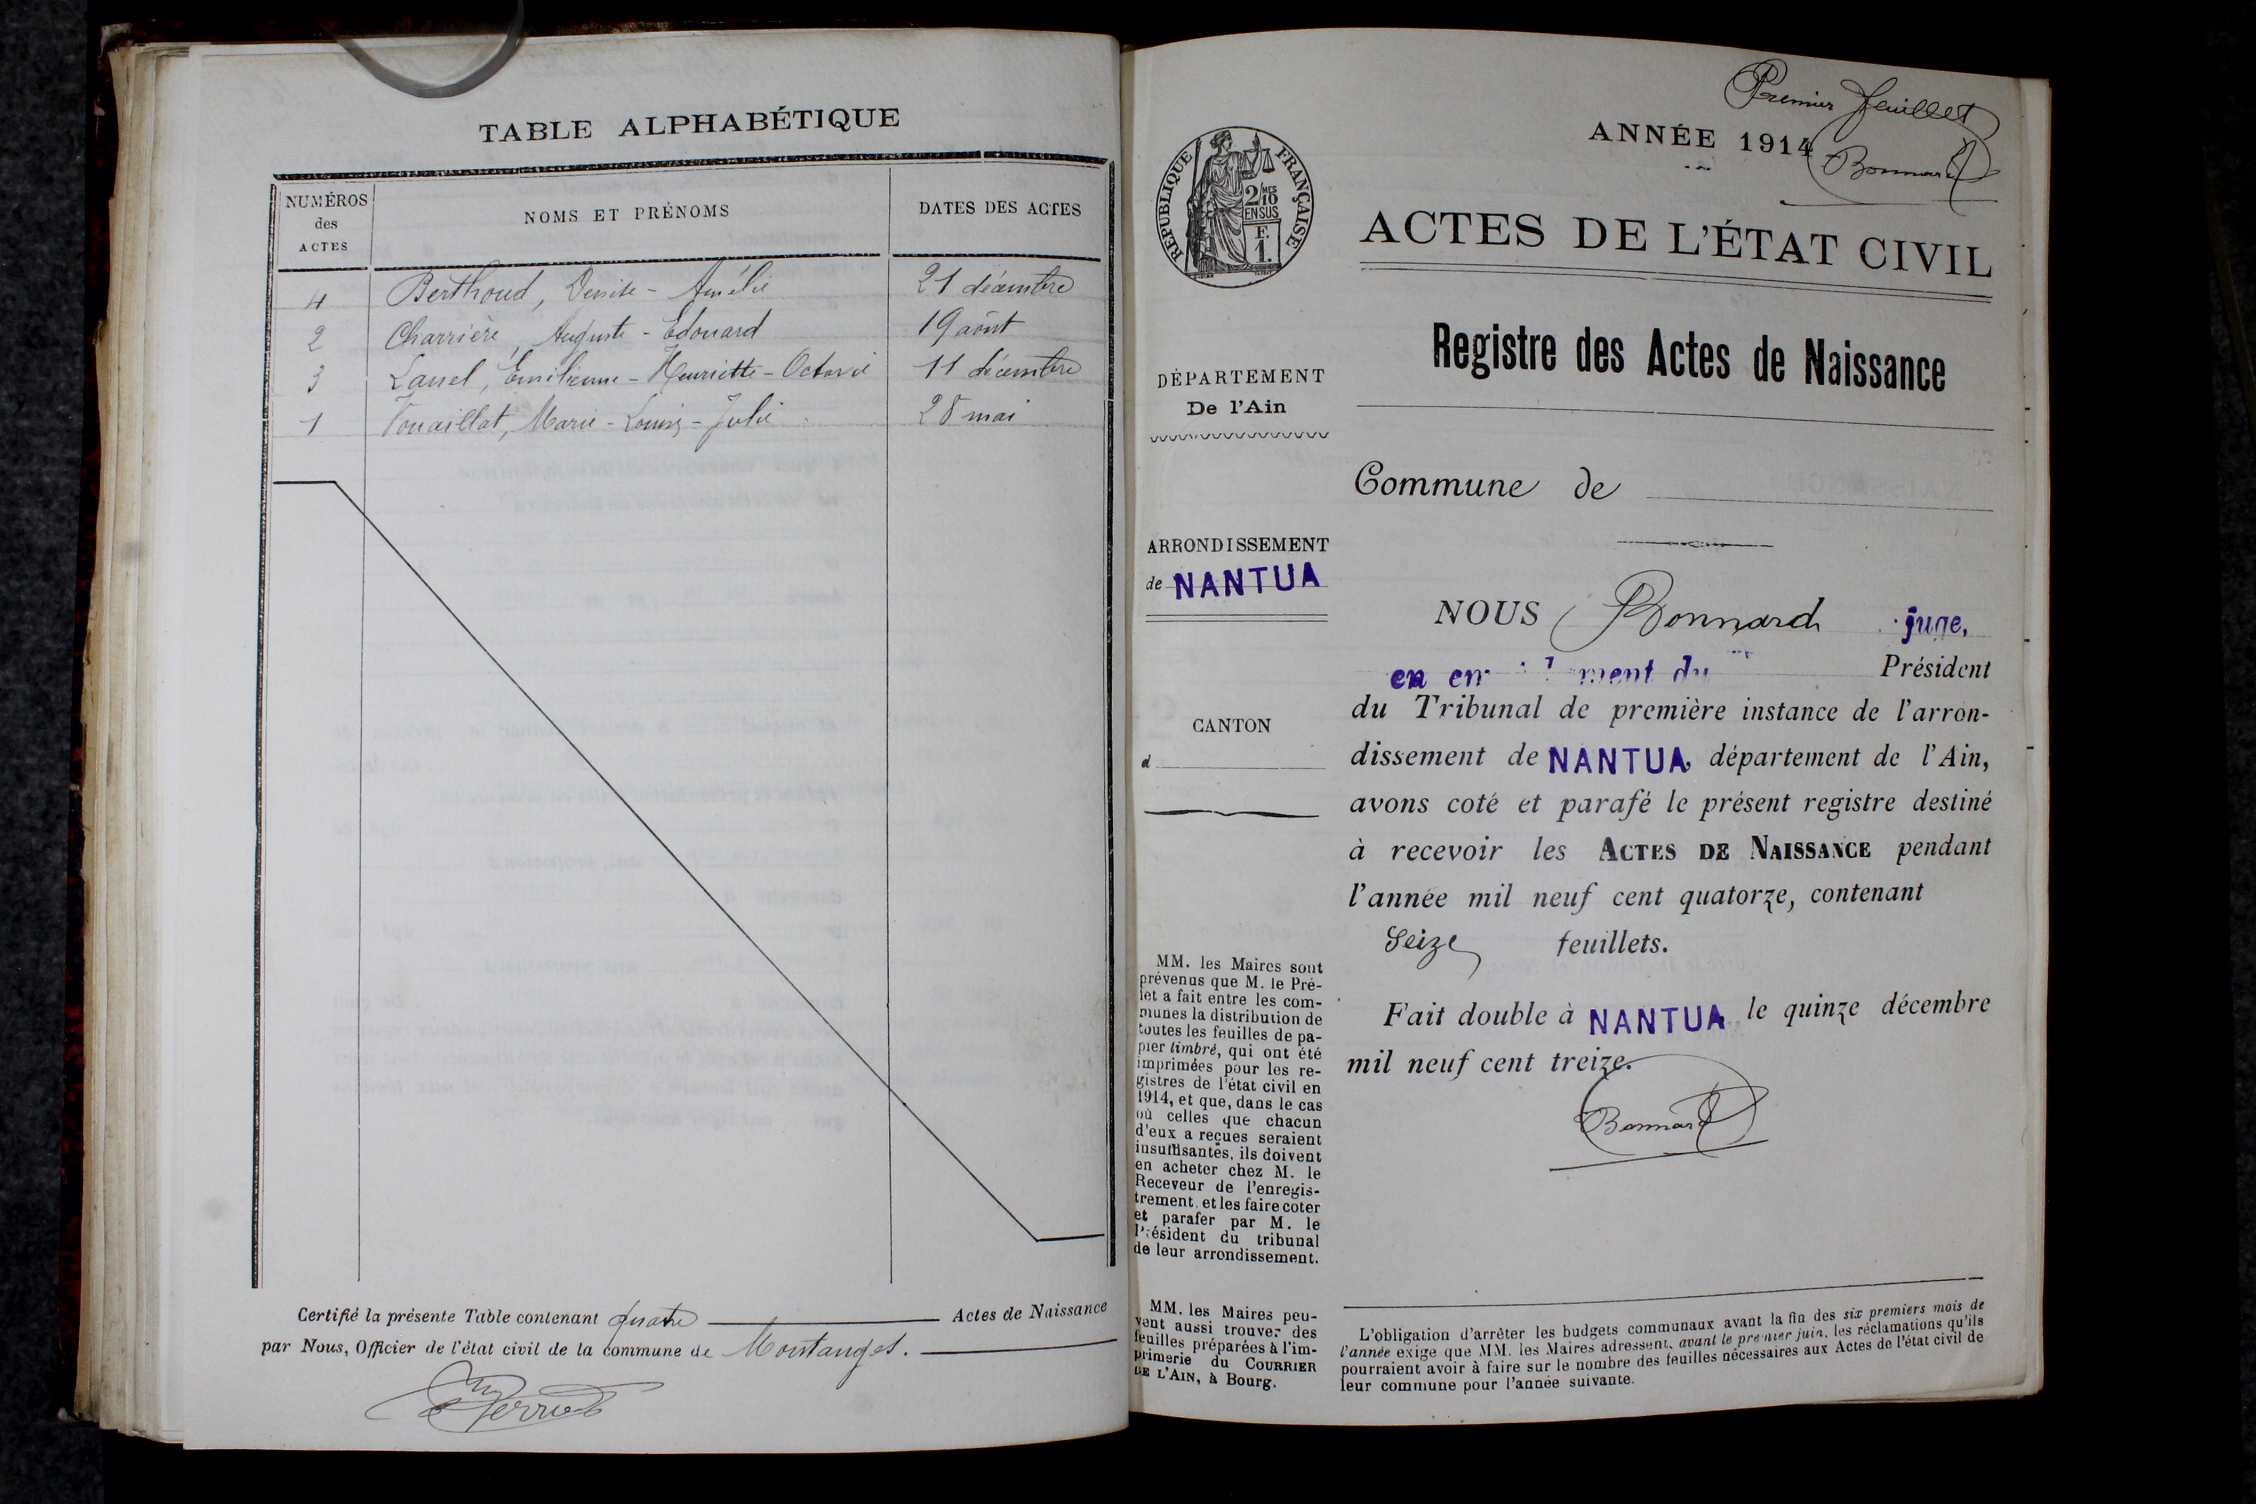 TABLE ALPHABÉTIQUE
NUMÉROS
des
ACTES
NOMS ET PRÉNOMS
DATES DES ACTES
4 Berthoud, Denise - Amélie 21 décembre
2 Charrière, Auguste - Edouard 19 août
3 Lansel, Émilienne - Henriette - Octavie 11 décembre
1 Vouaillat, Marie - Louise - Julie 28 mai
Certifié la présente Table contenant quatre Actes de Naissance
par Nous, Officier de l'état civil de la commune de Montanges.
Premier feuillet
Bonnard
ANNÉE 1914
RÉPUBLIQUE FRANÇAISE
2/10MES
EN SUS
F.
1.
ACTES DE L'ÉTAT CIVIL
Registre des Actes de Naissance
DÉPARTEMENT
De l'Ain
Commune de
ARRONDISSEMENT
de NANTUA
CANTON
d
NOUS Bonnard juge,
en du Président
du Tribunal de première instance de l'arron-
dissement de NANTUA, département de l'Ain,
avons coté et parafé le présent registre destiné
à recevoir les ACTES DE NAISSANCE pendant
l'année mil neuf cent quatorze, contenant
Seize feuillets.
Fait double à NANTUA le quinze décembre
mil neuf cent treize.
Bonnard
MM. les Maires sont
prévenus que M. le Pré-
fet a fait entre les com-
munes la distribution de
toutes les feuilles de pa-
pier timbré, qui ont été
imprimées pour les re-
gistres de l'état civil en
1914, et que, dans le cas
où celles que chacun
d'eux a reçues seraient
insuffisantes, ils doivent
en acheter chez M. le
Receveur de l'enregis-
trement, et les faire coter
et parafer par M. le
Président du tribunal
de leur arrondissement.
MM. les Maires peu-
vent aussi trouver des
feuilles préparées à l'im-
primerie du COURRIER
DE L'AIN, à Bourg.
L'obligation d'arrêter les budgets communaux avant la fin des six premiers mois de
l'année exige que MM. les Maires adressent, avant le premier juin, les réclamations qu'ils
pourraient avoir à faire sur le nombre des feuilles nécessaires aux Actes de l'état civil de
leur commune pour l'année suivante.